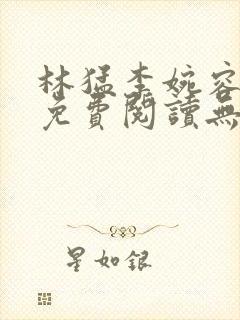 林猛李婉容
免費閱讀無
星如銀